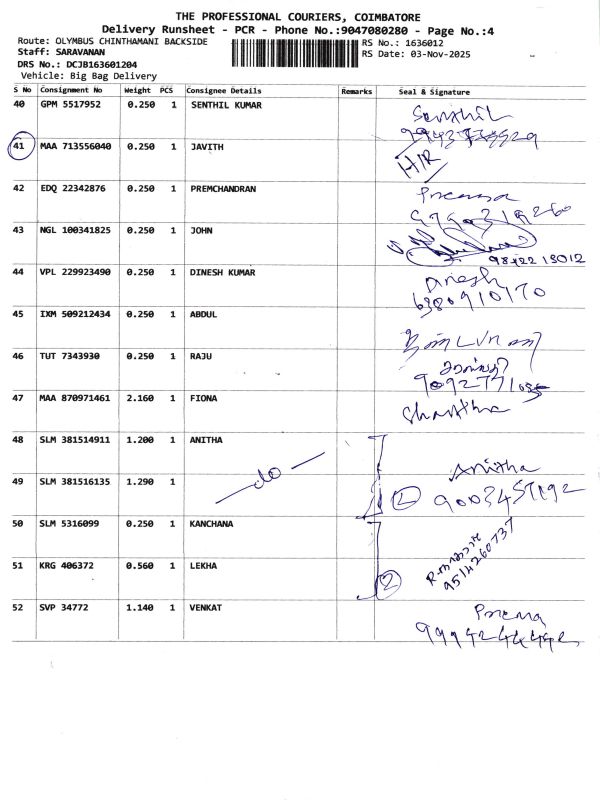 THE PROFESSIONAL COURIERS, COIMBATORE
Delivery Runsheet - PCR - Phone No.:9047080280 - Page No.:4
Route: OLYMBUS CHINTHAMANI BACKSIDE RS No.: 1636012
Staff: SARAVANAN RS Date: 03-Nov-2025
DRS No.: DCJB163601204
Vehicle: Big Bag Delivery
S No Consignment No Weight PCS Consignee Details Remarks Seal & Signature
40 GPM 5517952 0.250 1 SENTHIL KUMAR Senthil
41 MAA 713556040 0.250 1 JAVITH H/R
42 EDQ 22342876 0.250 1 PREMCHANDRAN
43 NGL 100341825 0.250 1 JOHN
98422 13012
44 VPL 229923490 0.250 1 DINESH KUMAR Dinesh
6380910170
45 IXM 509212434 0.250 1 ABDUL
46 TUT 7343930 0.250 1 RAJU
47 MAA 870971461 2.160 1 FIONA
48 SLM 381514911 1.200 1 ANITHA Anitha
49 SLM 381516135 1.290 1 — do — 2 9003457192
50 SLM 5316099 0.250 1 KANCHANA
9514260737
51 KRG 406372 0.560 1 LEKHA 2
52 SVP 34772 1.140 1 VENKAT Prema